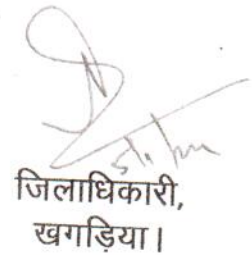 जिलाधिकारी,
खगड़िया।